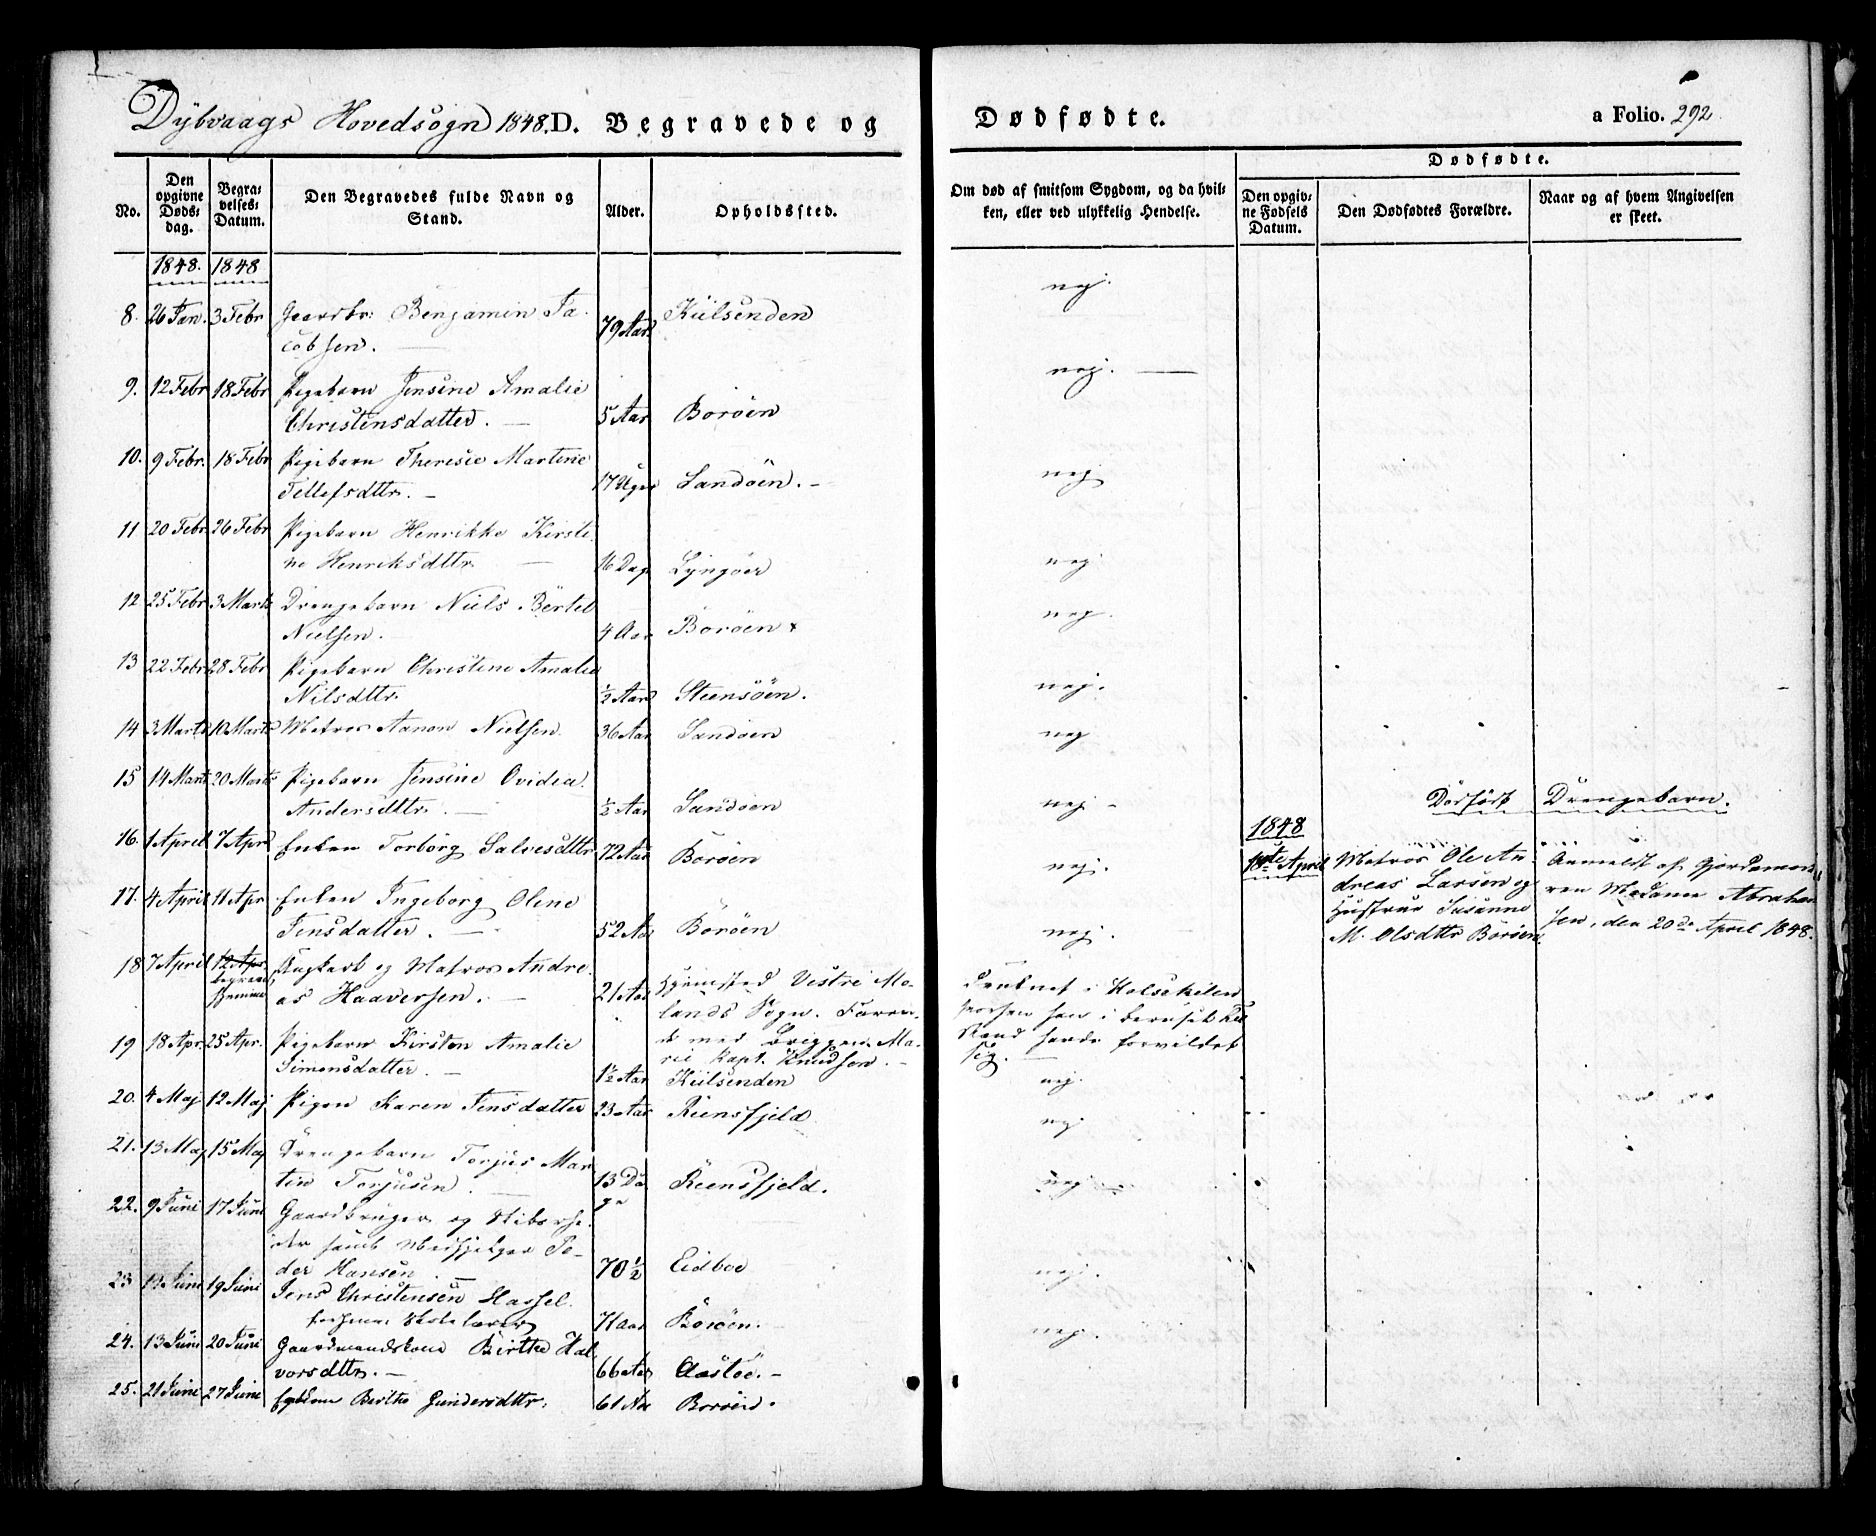 Dybvaags Hovedsogn 1848. D. Begravede og Dødfødte. a Folio. 292.
No.
Den opgivne Døds-dag.
Begra-velses-Datum.
Den Begravedes fulde Navn og Stand.
Alder.
Opholdssted.
Om død af smitsom Sygdom, og da hvil-ken, eller ved ulykkelig Hendelse.
Dødfødte.
Den opgiv-ne Fødsels Datum.
Den Dødfødtes Forældre.
Naar og af hvem Angivelsen er skeet.
1848. 1848
8. 26 Jan. 3 Febr Gaardbr: Benjamin Ja- 79 Aar Kiilsenden nej.
cobsen.
9. 12 Febr 18 Febr Pigebarn Jensine Amalie nej.
Christensdatter. 5 Aar Borøen
10. 9 Febr. 18 Febr Pigebarn Theresie Martine nej
Tellefsdttr. 17 Uger Sandøen.
11 20 Febr. 26 Febr Pigebarn Henrikke Kirsti-
ne Henriksdttr. 16 Dage Lyngøer nej
12 25 Febr 3 Marts Drengebarn Niels Bertel nej.
Nielsen. 4 Aar Borøen x
13 22 Febr 28 Febr Pigebarn Christine Amalie
Nilsdttr. ½ Aar Steensøen. nej.
14 3 Marts 10 Marts Matros Aanon Nielsen. 36 Aar Sandøen nej
15 14 Marts 20 Marts Pigebarn Jensine Ovidea
Andersdttr. ½ Aar Sandøen nej
Dødfødt Drengebarn.
1848
16. 1 April 7 April Enken Torborg Salvesdttr 72 Aar Borøen nej.
18de April Matros Ole An- Anmeldt af Gjordemo-
dreas Larsen og ren Madame Abraham-
Hustrue Susanne sen, den 20de April 1848.
M. Olsdttr Borøen
17. 4 April 11 Apr Enken Ingeborg Oline
Jensdatter. 52 Aar Borøen nej.
18 7 April 12 Apr. Ungkarl og Matros Andre-
begravet hjemme
as Haaversen. 21 Aar Hjemsted Vestre Mo-
lands Sogn. Faren-
de med Briggen Ma-
rie Kapt. Knudsen.
Druknet i Holsekilen
hvorhen han i beruset Til-
stand havde forvildet
sig.
19 18 Apr. 25 Apr. Pigebarn Kirsten Amalie
Simonsdatter. 1½ Aar Kiilsenden nej.
20. 4 Maj 12 Maj Pigen Karen Jensdatter 23 Aar Reensfjeld nej
21. 13 Maj 15 Maj Drengebarn Torjus Mar-
tin Torjusen. 13 Da- Reensfjeld. nej
ge
22. 9 Juni 17 Juni Gaardbruger og
samt Pe-
der Hansen. 70½ Eidboe nej.
23 12 Juni 19 Juni Jens Christensen Hassel.
forhen Skolelærer 71 Aar Borøen.
24. 13 Juni 20 Juni Gaardmandskone Birthe Hal- nej.
vorsdttr. 66 Aar Aastøe.
25. 21 Juni 27 Juni Berthe Gundersdttr. 61 Aar Borøen.